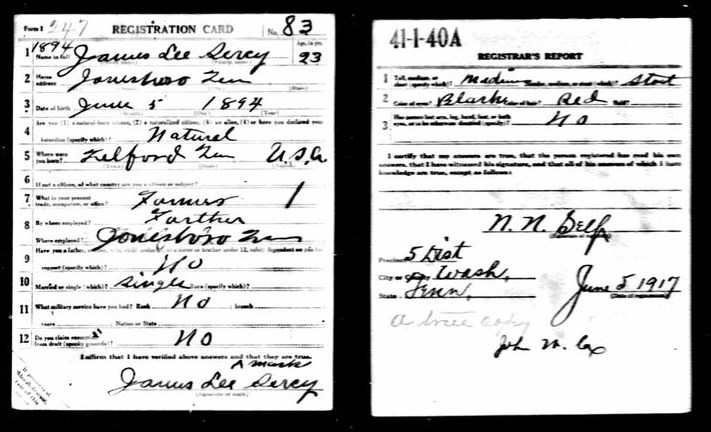 Form 1 247 REGISTRATION CARD No. 83
1894
Age, in yrs.
1 Name in full James Lee Sercy 23
2 Home address Jonesboro Ten
3 Date of birth June 5 1894
4 Are you (1) a natural-born citizen, (2) a naturalized citizen, (3) an alien, (4) or have you declared your intention (specify which)? Natural
5 Where were you born? Telford Ten U.S.A
6 If not a citizen, of what country are you a citizen or subject?
7 What is your present trade, occupation, or office? Farmer 1
8 By whom employed? Farther
Where employed? Jonesboro Ten
9 Have you a father, support (specify which)? No
10 Married or single (which)? Single Race (specify which)?
11 What military service have you had? Rank No branch
years Nation or State
12 Do you claim exemption from draft (specify grounds)? No
I affirm that I have verified above answers and that they are true.
mark
James Lee Sercy
(Signature or mark)
41-1-40A
REGISTRAR'S REPORT
1 Tall, medium, or short (specify which)? Medium Slender, medium, or stout (which)? Stout
2 Color of eyes? Black Color of hair? Red Bald?
3 Has person lost arm, leg, hand, foot, or both eyes, or is he otherwise disabled (specify)? No
I certify that my answers are true, that the person registered has read his own
answers, that I have witnessed his signature, and that all of his answers of which I have
knowledge are true, except as follows:
N. N. Delp
Precinct 5 Dist
City or Wash,
State Tenn, June 5 1917
(Date of registration)
a true copy
John M. Cox